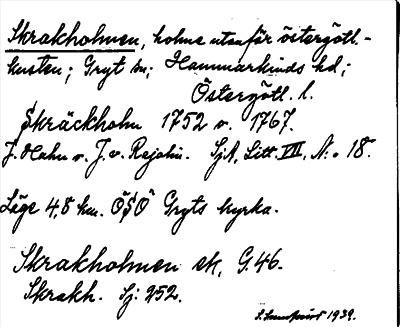 Skrakholmen, holme utanför östergötl.-
kusten; Gryt sn; Hammarkinds hd;
Östergötl. l.
Skräckholm 1752 o. 1767.
J. Hahn o. J. v. Rajalin. SjA, Litt. VII, N:o 18.
Läge 4,8 km. ÖSÖ Gryts kyrka.
Skrakholmen ek, G. 46.
Skrakh. Sj: 252.
1939.